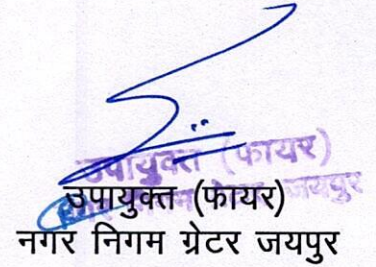 उपायुक्त (फायर)
उपायुक्त (फायर)
नगर निगम ग्रेटर जयपुर